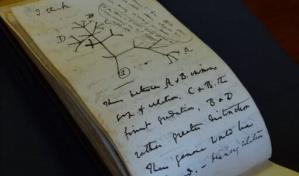 I think
D
B
C
A
1
Then between A & B. immense
gap of relation. C & B. the
finest gradation, B & D
rather greater distinction
Thus genera would be
formed. — relation